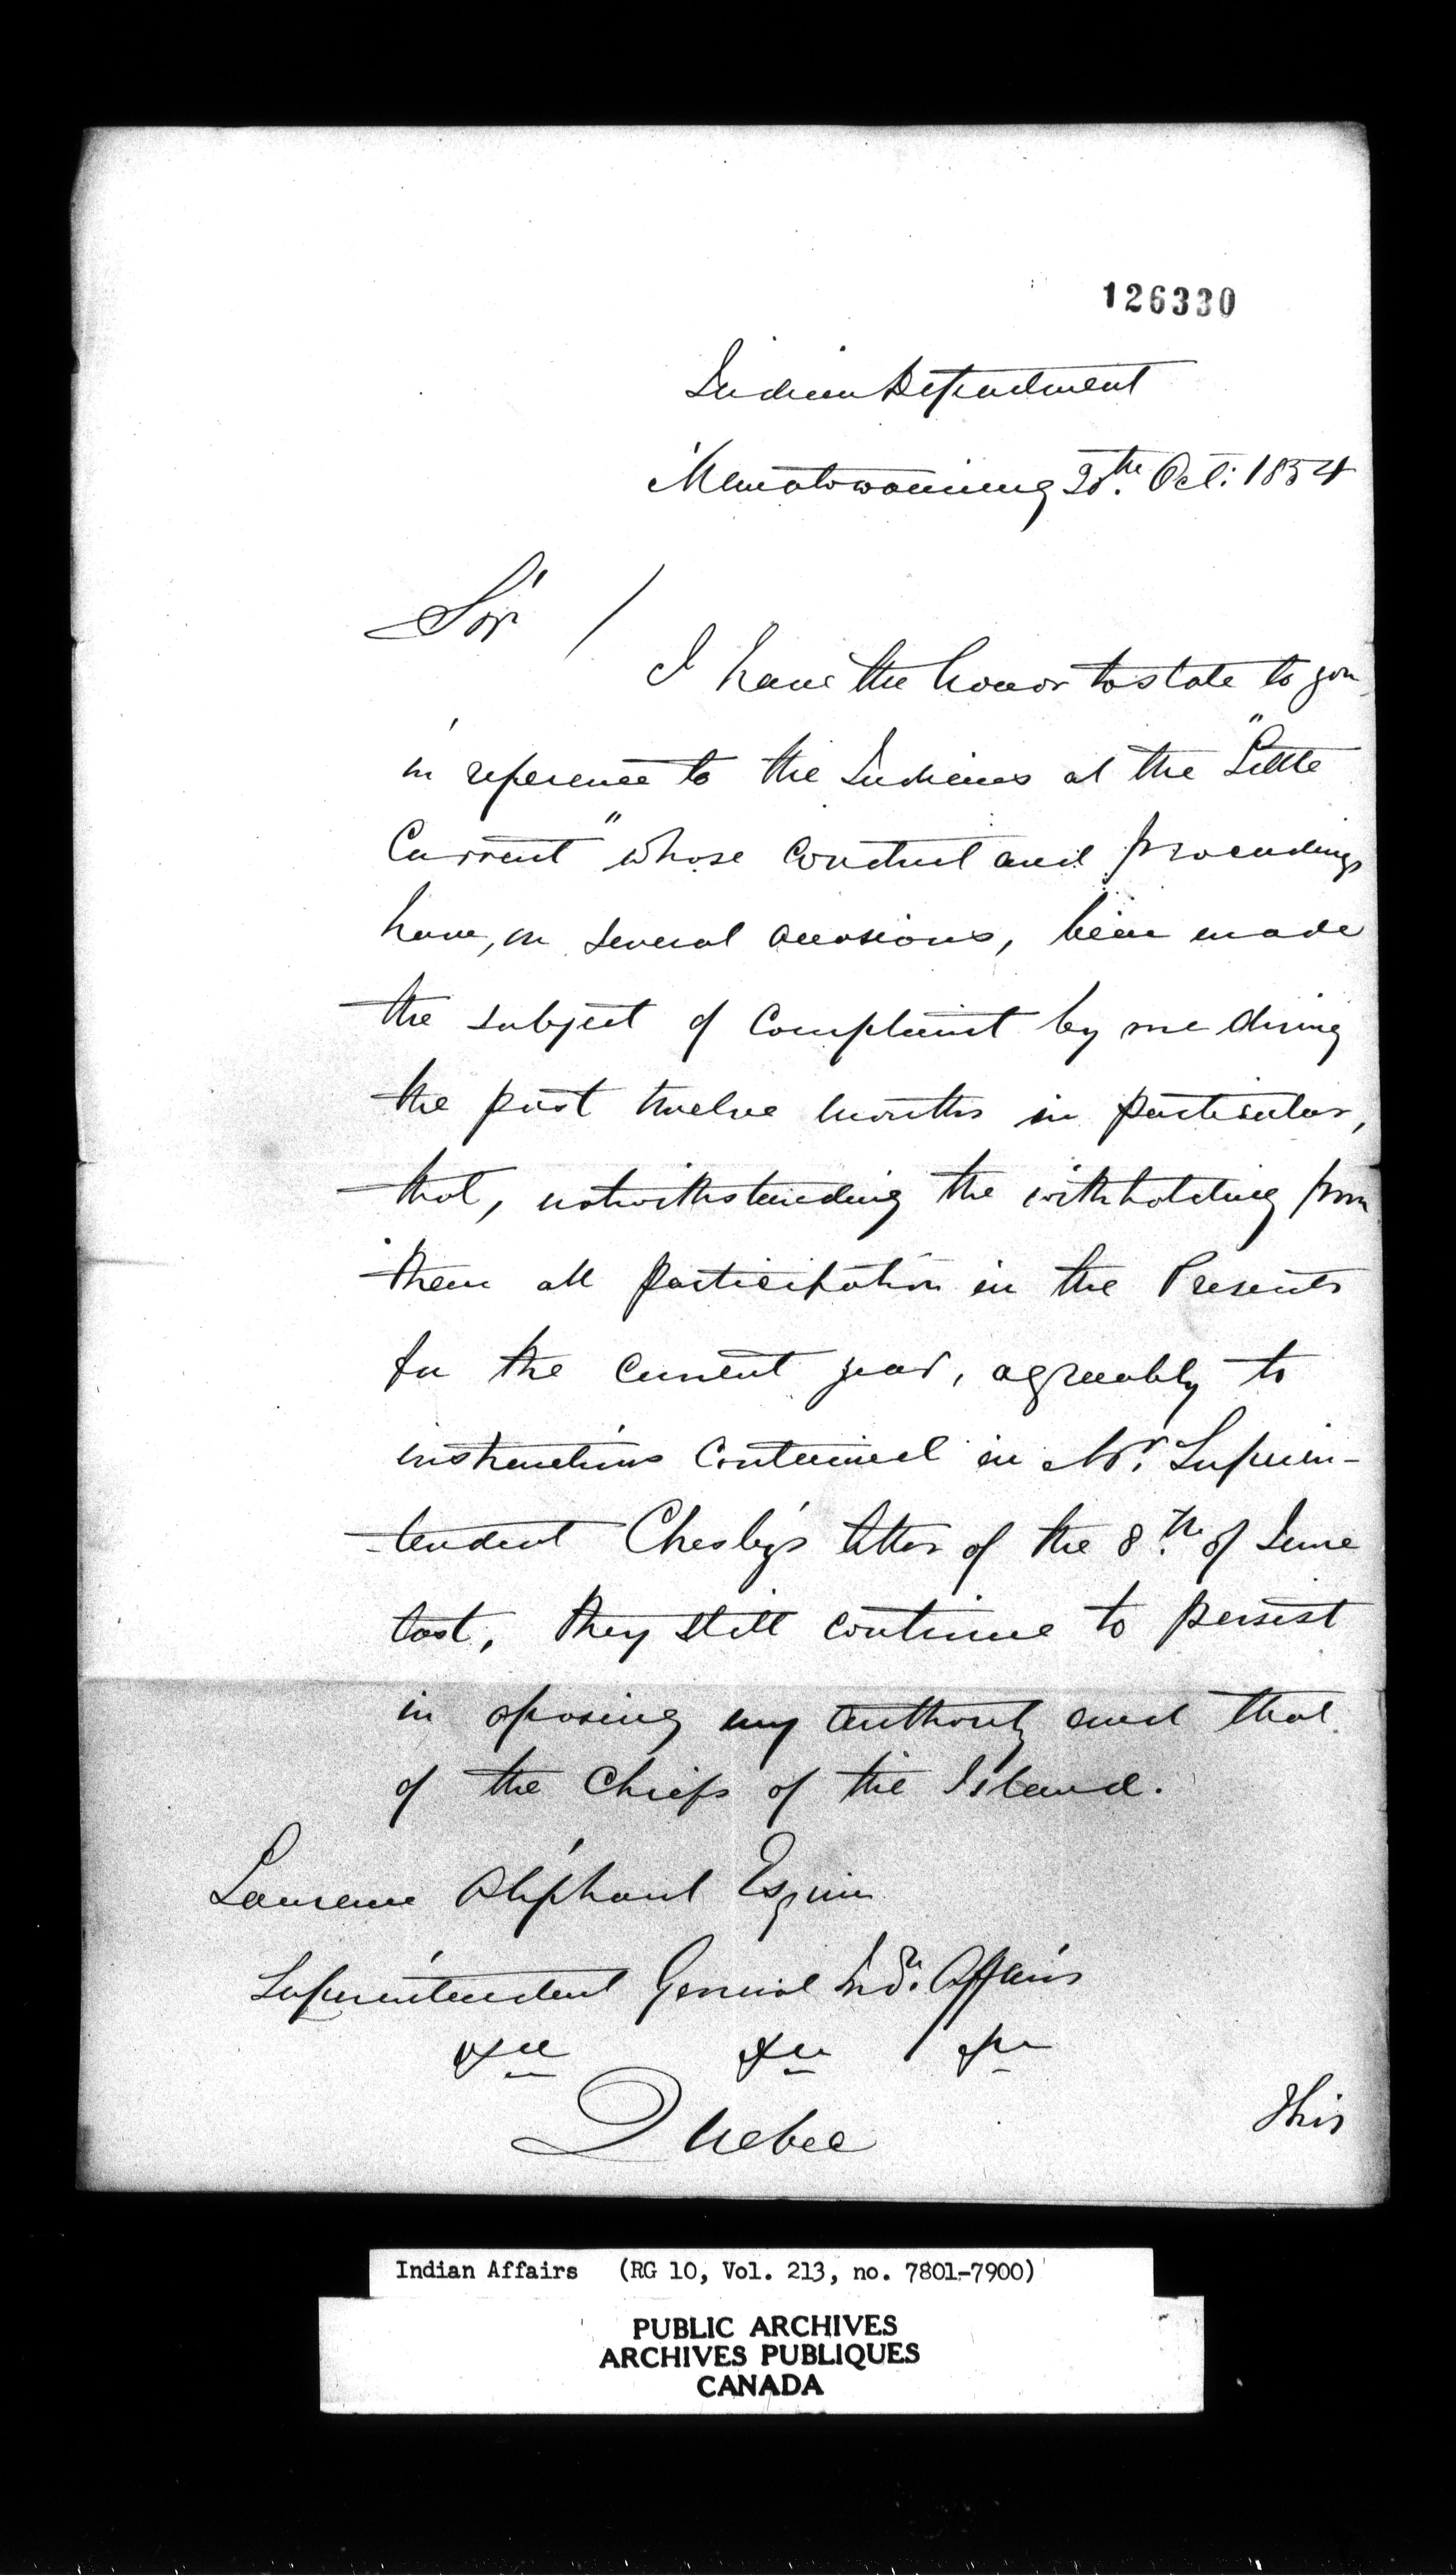 126330
Indian Department
Manatowaning 20th. Oct: 1854
Sir /
I have the honor to state to you,
in reference to the Indians at the "Little
Current" whose conduct and proceedings
have, on several occasions, been made
the subject of complaint by me during
the past twelve months in particular,
that, notwithstanding the withholding from
them all participation in the Presents
for the current year, agreeably to
instructions contained in Mr. Superin-
-tendent Chesley's letter of the 8th. of June
last, they still continue to persist
in oposing my authority and that
of the Chiefs of the Island.
Laurence Oliphant Esquire
Superintendent General Indn. Affairs
&c &c &c
Quebec
This
Indian Affairs (RG 10, Vol. 213, no. 7801-7900)
PUBLIC ARCHIVES
ARCHIVES PUBLIQUES
CANADA